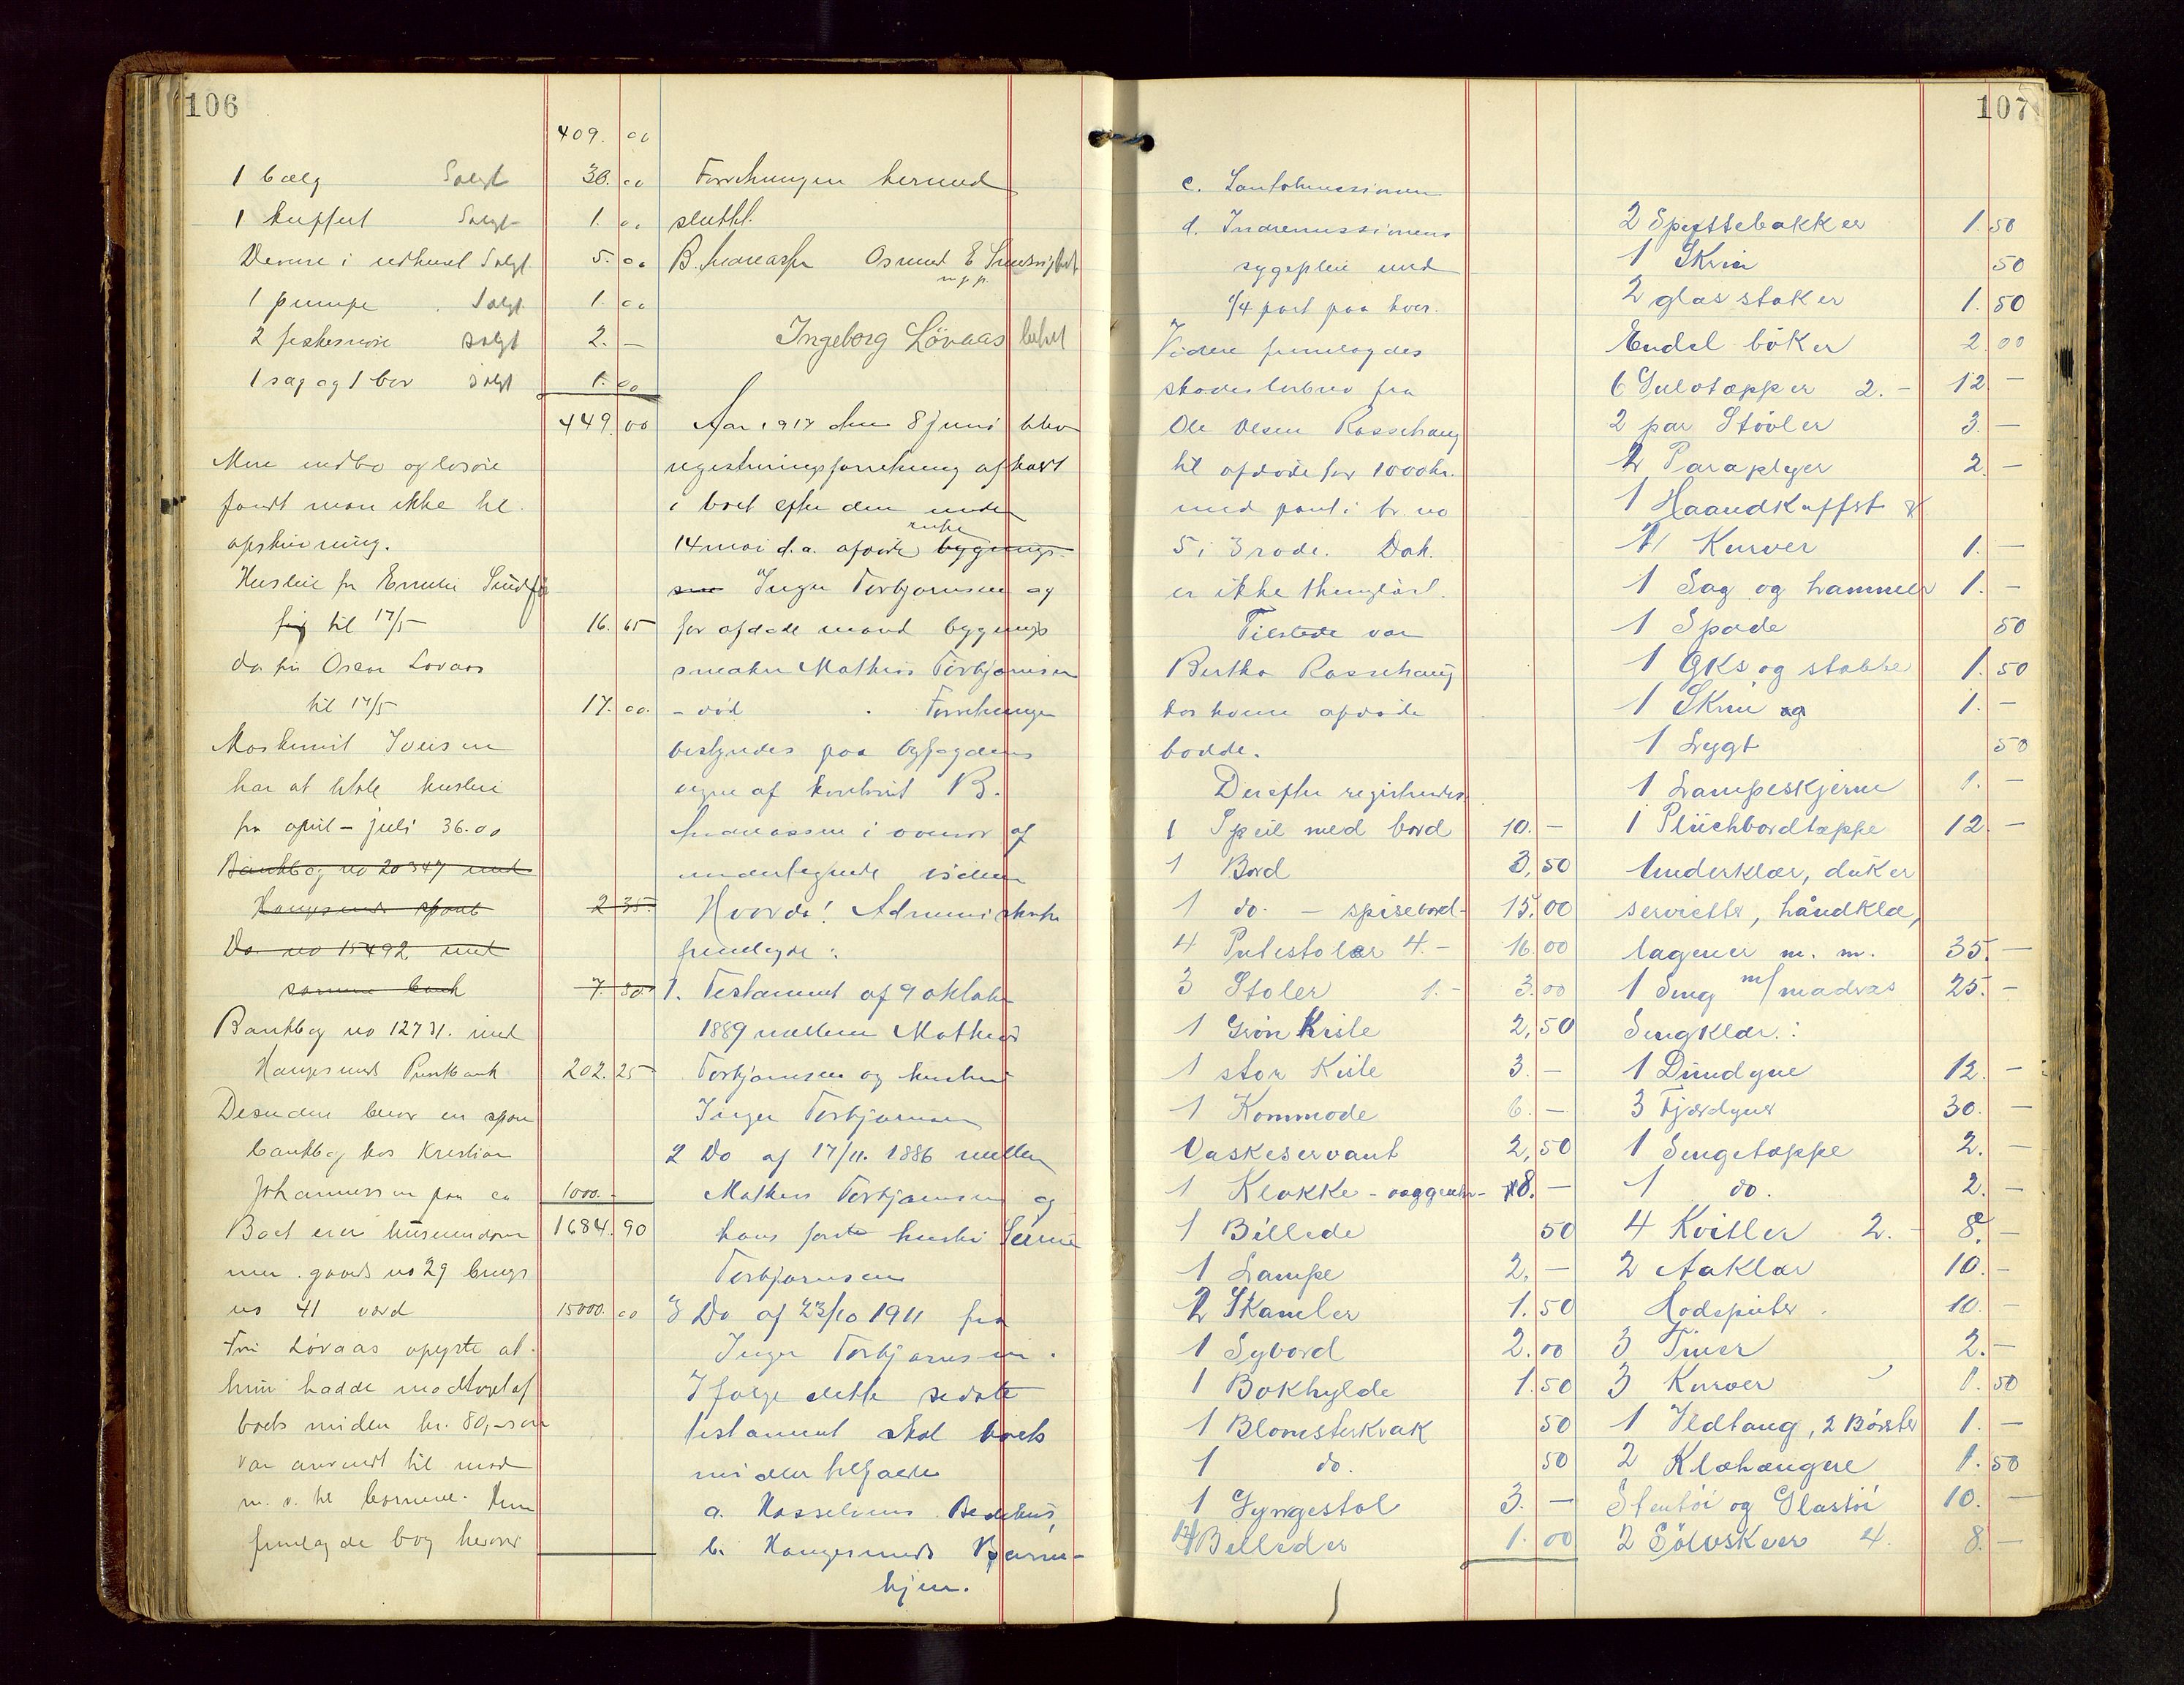 106
409. 00
1 bælg Solgt 30. 00
1 kuffert Solgt 1. 00
Diverse i redhuset Solgt 5. 00
1 pumpe Solgt 1. 00
2 fiskesnøre solgt 2. —
1 sag og 1 bor solgt 1. 00
449. 00
Mere indbo og løsøre
fandt man ikke til
opskrivning.
Husleie fr Emilie
til 17/5 16. 65
do fra Oscar Lovaas
til 17/5 17. 00.
Maskinist Iversen
har at betale husleie
fra april – juli 36.00
Bankbog no 20347 med
Haugesunds spareb 2 35.
Do no 15492 med
samme bank 7. 50
Bankbog no 12731. med
Haugesunds Privatbank 202. 25
Desuden beror en spare
bankbog hos Kristian
Johannessen paa ca 1000. –
Boet eier huseiendom 1684. 90
men gaards no 29 brugs
no 41 værd 15000. 00
Fru Lövaas oplyste at
hun hadde modtaget af
boets midler kr. 80,– som
var anvendt til mad
m. v. til børnene. Hun
fremlagde bog herover
Forretningen hermed
sluttet.
B. Andreassen Osmund E
m. p. p.
Ingeborg Lövaas
Aar 1917 den 8 juni blev
registreringsforretning afholdt
i boet efter den under
enke
14 mai d.a. afdøde bygmes-
Inger Torbjørnsen og
før afdøde mand bygnings
snekker Mathias Torbjørnsen
– død. Forretningen
bestyredes paa byfogdens
vegne af B.
Andreassen i overvær af
undertegnede vidner
Hvorda! Administrator
fremlagde:
1. Testament af 9 oktober
1889 mellem Mathias
Torbjørnsen og hustru
Inger Torbjørnsen
2 Do af 17/11. 1886 mellem
Mathias Torbjørnsen og
hans første hustru
Torbjørnsen
3 Do af 23/10 1911 fra
Inger Torbjørnsen.
Ifølge dette sidste
testament skal boets
midler tilfalde
a. Hasseløens Bedehus,
b. Haugesunds Barne-
hjem.
107
c. Santalmissionen
d. Indremissionens
sygepleie med
1/4 part paa hver.
Videre fremlagdes
skadesløsbrev fra
Ole Olsen Rossehaug
til afdøde for 1000 kr.
med pant i br. no
5 i 3 rode. Dok.
er ikke thinglæst.
Tilstede var
Bertha Rossehaug
hos hvem afdøde
bodde.
Derefter registreredes
1 Speil med bord 10. –
1 Bord 3,50
1 do. – spisebord – 15.00
4 Putestoler 4.– 16.00
3 Stoler 1.– 3.00
1 Grön Kiste 2,50
1 stor Kiste 3. –
1 Kommode 6. –
Vaskeservant 2,50
1 Klokke – væggeuhr – 8. –
1 Billede 50
1 Lampe 2, –
2 Skamler 1.50
1 Sybord 2.00
1 Bokhylde 1.50
1 Blomsterkrak 50
1 do. 50
1 Gyngestol 3. –
14 Billeder 1.00
2 Spyttebakker 1.50
1 Skrin 50
2 glas staker 1.50
Endel böker 2.00
6 Gulvtæpper 2.– 12. –
2 par Stövler 3. –
2 Paraplyer 2. –
1 Haandkuffert &
1 Kurver 1. –
1 Sag og hammer 1. –
1 Spade 50
1 Öks og stabbe 1.50
1 Skrin og 1. –
1 Lygt 50
1 Lampeskjerm 1. –
1 Plüchbordtæppe 12. –
Underklær, duker
servietter, håndklæ,
lagener m. m. 35. –
1 Seng m/madras 25. –
Sengklær:
1 Dundyne 12. –
3 Fjærdyner 30. –
1 Sengetæppe 2. –
1 do. 2. –
4 Kvitler 2. – 8. –
2 Aaklær 10. –
Hodeputer 10. –
3 Tiner 2. –
3 Kurver 1.50
1 Ildtang, 2 Börster 1. –
2 Klæhængere 1.50
Stentöi og Glastöi 10. –
2 Sölvskeer 4. 8. –